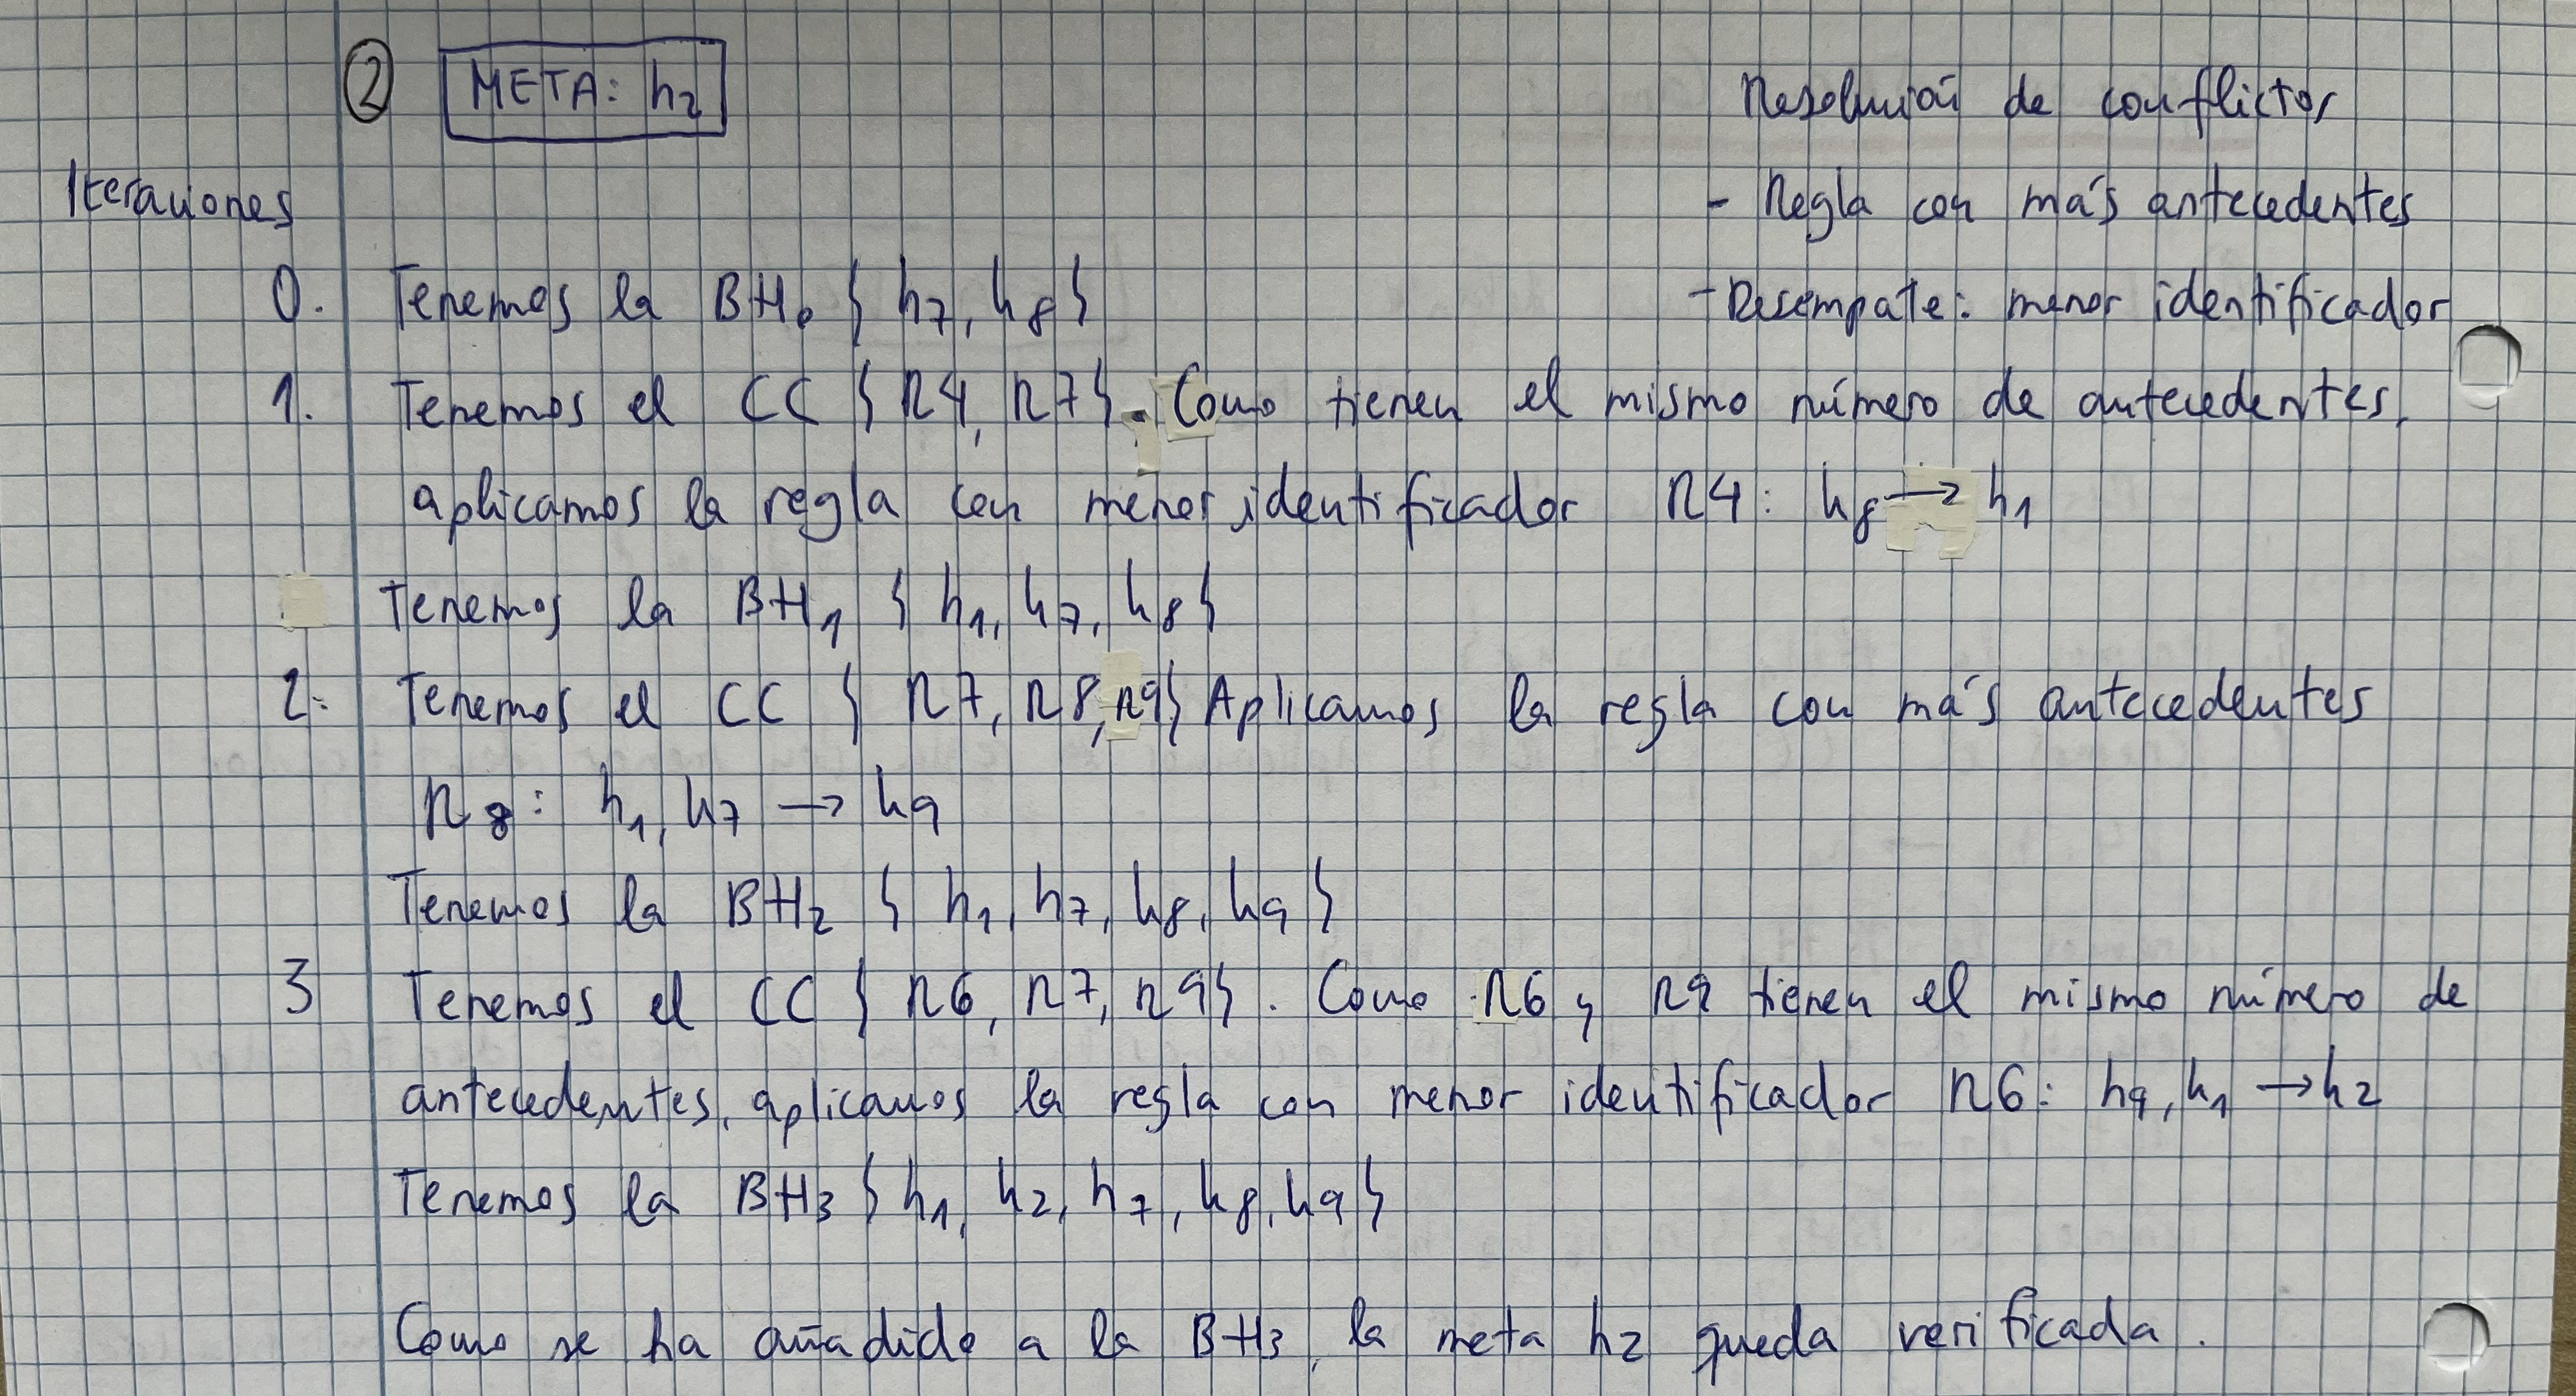 ② META: h₂
Resolución de conflictos
Iteraciones
- Regla con más antecedentes
0. Tenemos la BH₀ { h₇, h₈ }
- Desempate: menor identificador
1. Tenemos el CC { R4, R7 }. Como tienen el mismo número de antecedentes,
aplicamos la regla con menor identificador R4: h₈ → h₁
Tenemos la BH₁ { h₁, h₇, h₈ }
2. Tenemos el CC { R7, R8, R9 } Aplicamos la regla con más antecedentes
R8: h₁, h₇ → h₉
Tenemos la BH₂ { h₁, h₇, h₈, h₉ }
3 Tenemos el CC { R6, R7, R9 }. Como R6 y R9 tienen el mismo número de
antecedentes, aplicamos la regla con menor identificador R6: h₉, h₁ → h₂
Tenemos la BH₃ { h₁, h₂, h₇, h₈, h₉ }
Como se ha añadido a la BH₃, la meta h₂ queda verificada.